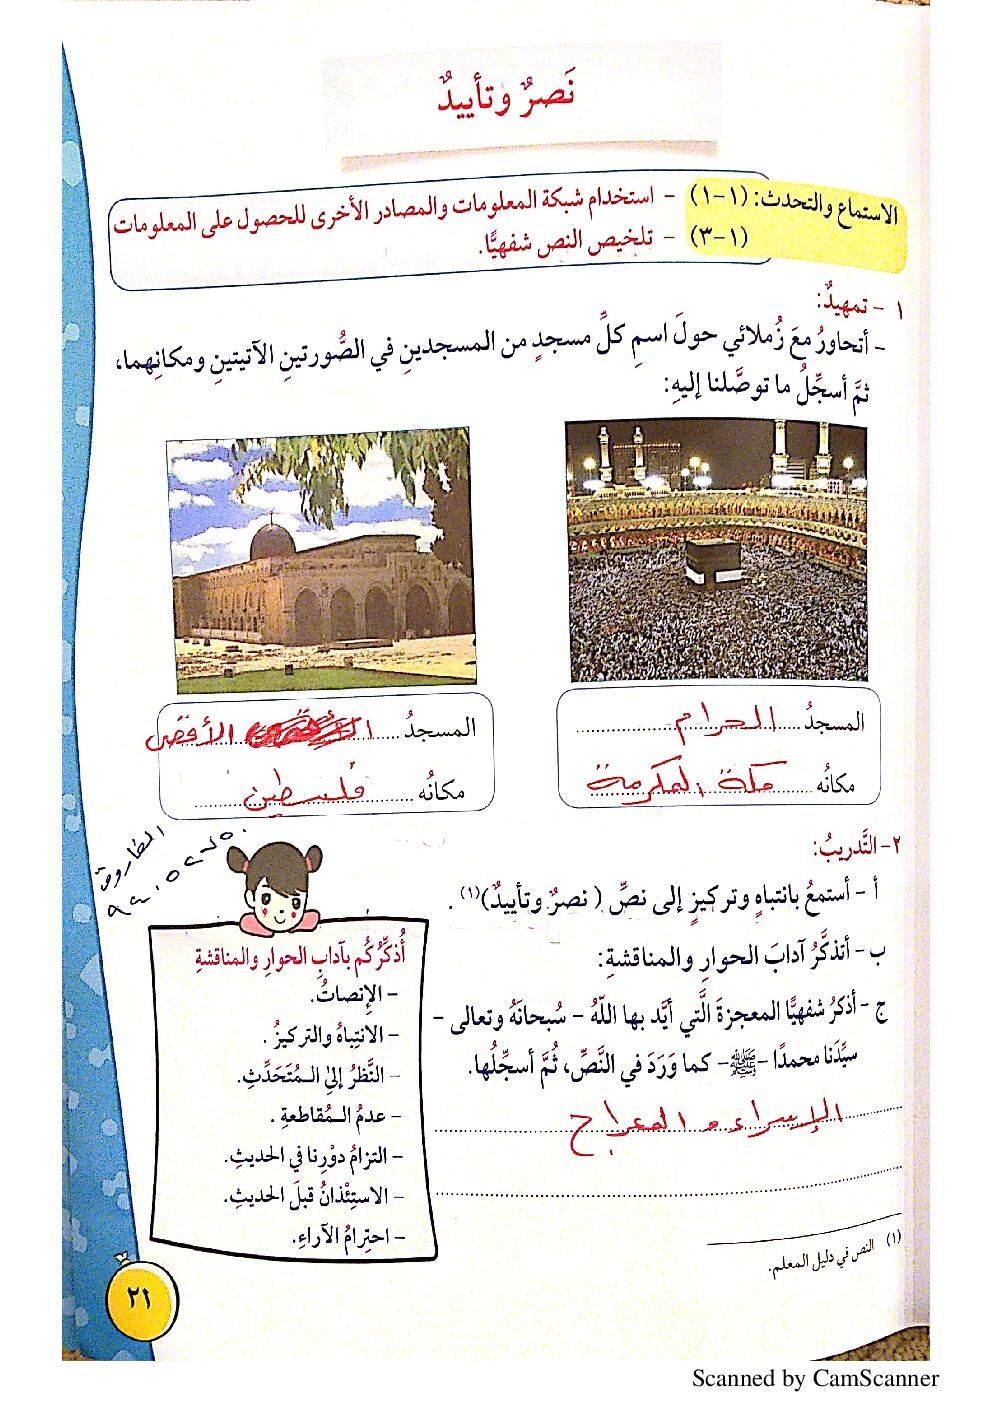 نَصرٌ وتأييدٌ
الاستماع والتحدث: (١-١) - استخدام شبكة المعلومات والمصادر الأخرى للحصول على المعلومات
(١-٣) - تلخيص النص شفهيًّا.
١ - تمهيدٌ:
- أتحاورُ معَ زُملائي حولَ اسمِ كلِّ مسجدٍ من المسجدينِ في الصُّورتينِ الآتيتينِ ومكانِهما،
ثمَّ أسجِّلُ ما توصَّلنا إليهِ:
المسجدُ الحرام
مكانُه مكة المكرمة
المسجدُ الأقصى
مكانُه فلسطين
٢- التَّدريبُ:
أ - أستمعُ بانتباهٍ وتركيزٍ إلى نصِّ ( نصرٌ وتأييدٌ)(١) .
ب - أتذكَّرُ آدابَ الحوارِ والمناقشةِ:
ج - أذكرُ شفهيًّا المعجزةَ الَّتي أيَّد بها اللّهُ - سُبحانَهُ وتعالى -
سيِّدَنا محمدًا -ﷺ- كما وَرَدَ في النَّصِّ، ثُمَّ أسجِّلُها.
الإسراء و المعراج
الفاروق
أُذكِّرُكُم بآدابِ الحوارِ والمناقشةِ
- الإنصاتُ.
- الانتِباهُ والتركيزُ .
- النَّظرُ إلى المُتَحَدِّثِ.
- عدمُ المُقاطعةِ .
- التزامُ دوْرِنا في الحديثِ.
- الاستِئْذانُ قبلَ الحديثِ.
- احترامُ الآراءِ.
(١) النص في دليل المعلم.
٢١
Scanned by CamScanner